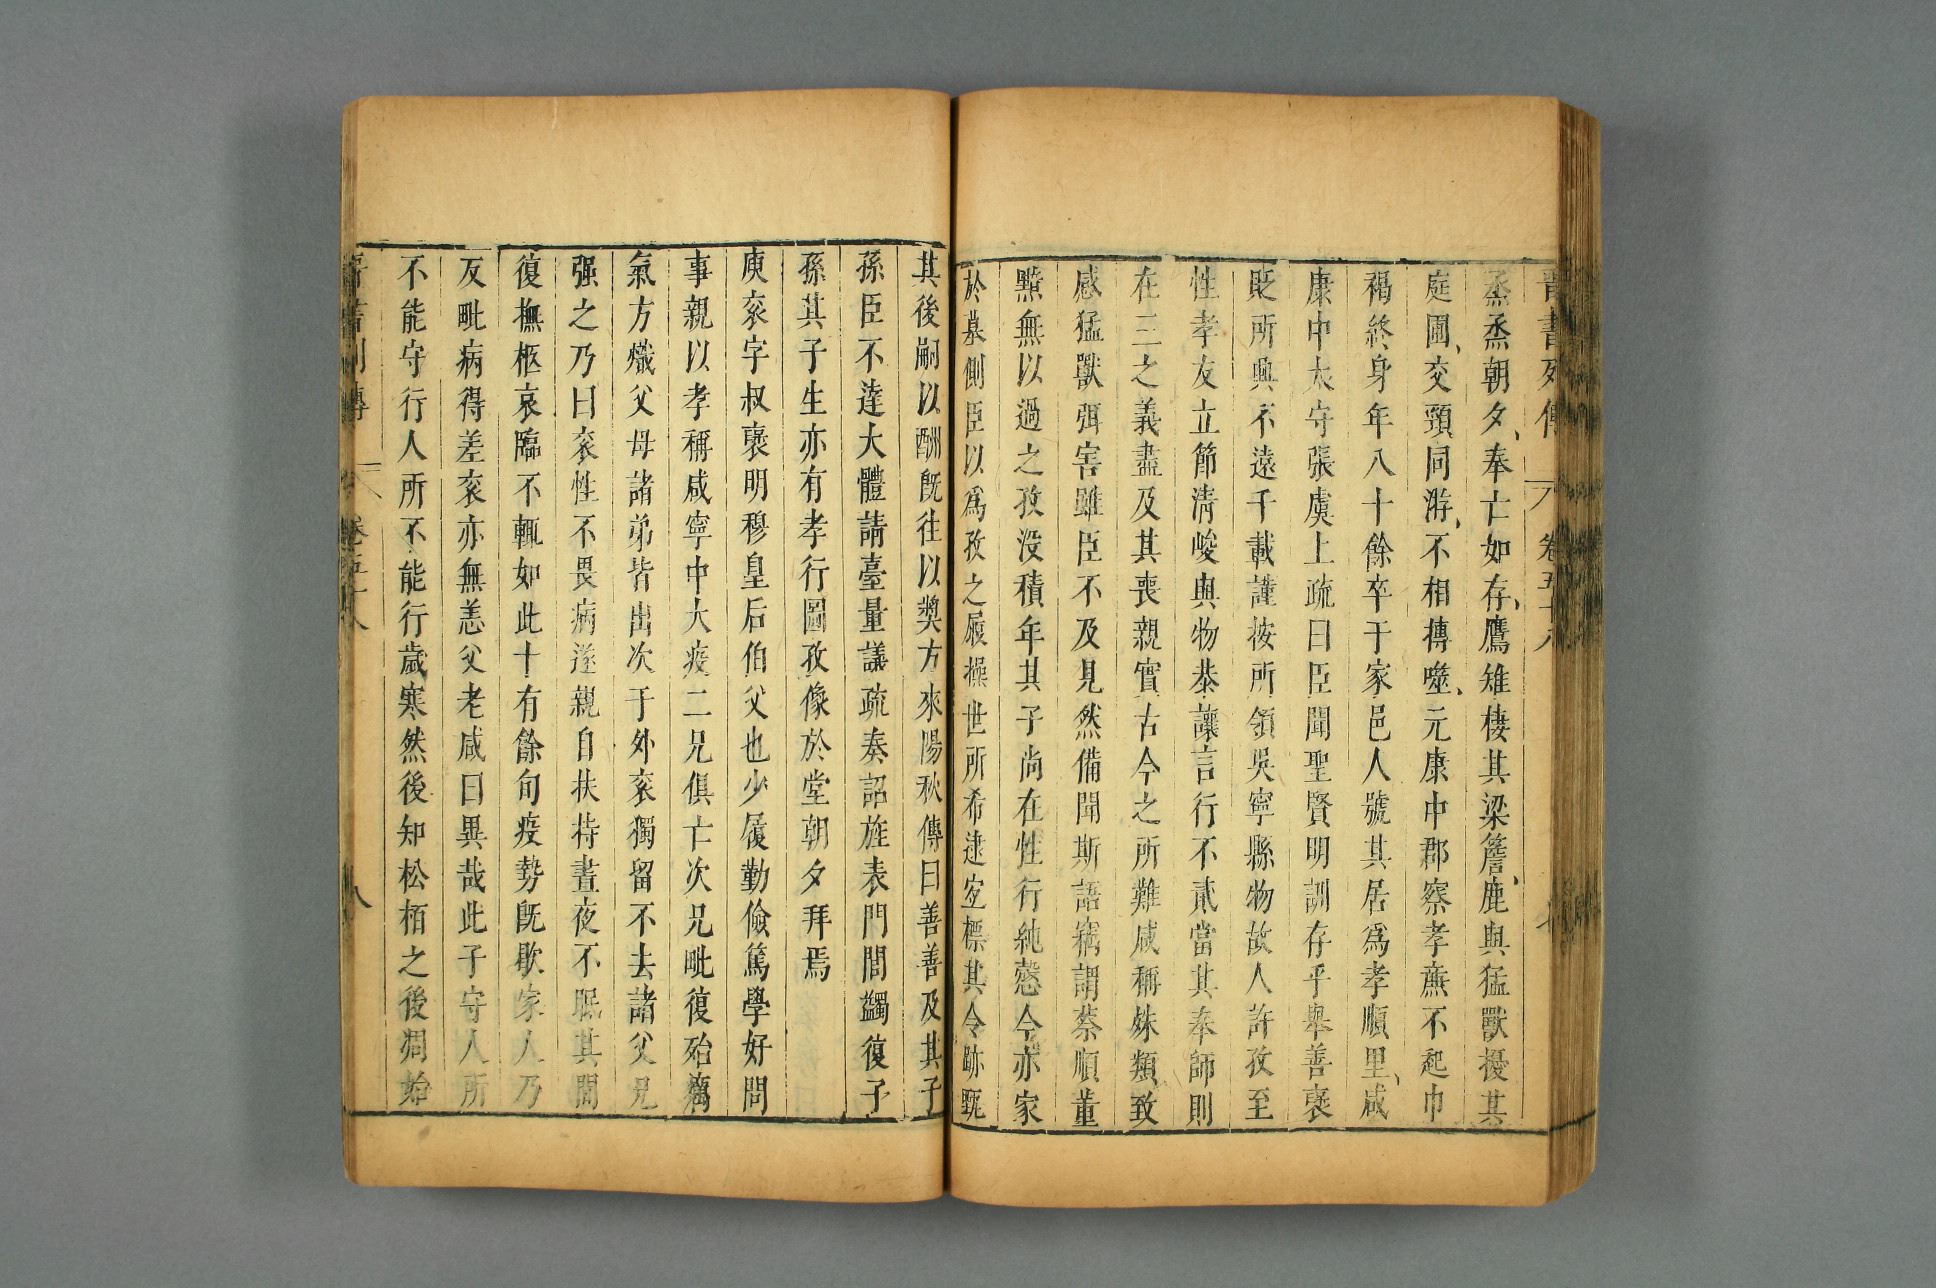 晉書列傳 卷五十八 七
烝烝朝夕奉亡如存鷹雉棲其梁簷鹿與猛獸擾其
庭圃交頸同游不相搏噬元康中郡察孝廉不起巾
褐終身年八十餘卒于家邑人號其居爲孝順里咸
康中太守張虞上疏曰臣聞聖賢明訓存乎舉善褒
貶所興不遠千載謹按所領吳寧縣物故人許孜至
性孝友立節清峻與物恭讓言行不貳當其奉師則
在三之義盡及其喪親實古今之所難咸稱殊類致
感猛獸弭害雖臣不及見然備聞斯語竊謂蔡順董
黯無以過之孜没積年其子尚在性行純慤今亦家
於墓側臣以爲孜之履操世所希逮宐標其令跡甄
其後嗣以酬旣往以奬方來陽秋傳曰善善及其子
孫臣不達大體請臺量議疏奏詔旌表門閭蠲復子
孫其子生亦有孝行圖孜像於堂朝夕拜焉
庾衮字叔褒明穆皇后伯父也少履勤儉篤學好問
事親以孝稱咸寧中大疫二兄俱亡次兄毗復殆癘
氣方熾父母諸弟皆出次于外衮獨留不去諸父兄
强之乃曰衮性不畏病遂親自扶持晝夜不眠其間
復撫柩哀臨不輟如此十有餘旬疫勢旣歇家人乃
反毗病得差衮亦無恙父老咸曰異哉此子守人所
不能守行人所不能行歲寒然後知松栢之後凋始
晉書列傳 卷五十八 八